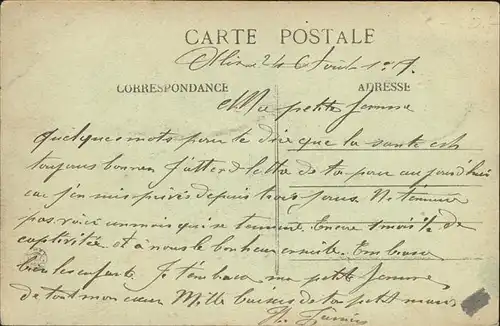 CARTE POSTALE
24 Août
CORRESPONDANCE
ADRESSE
Ma petite femme
Quelques mots pour te dire que la sante est
toujours bonne J'attend lettre de ta par aujourd'hui
car j'en suis privés depuis trois jours. Ne
pas voici un mois qui se termine. Encore 1 mois ½ de
captivitée et à nous le bonheur ensuite. Embrasse
bien les enfants. Je t'embrasse ma petite femme
de tout mon cœur Mille baisers de ton petit mari